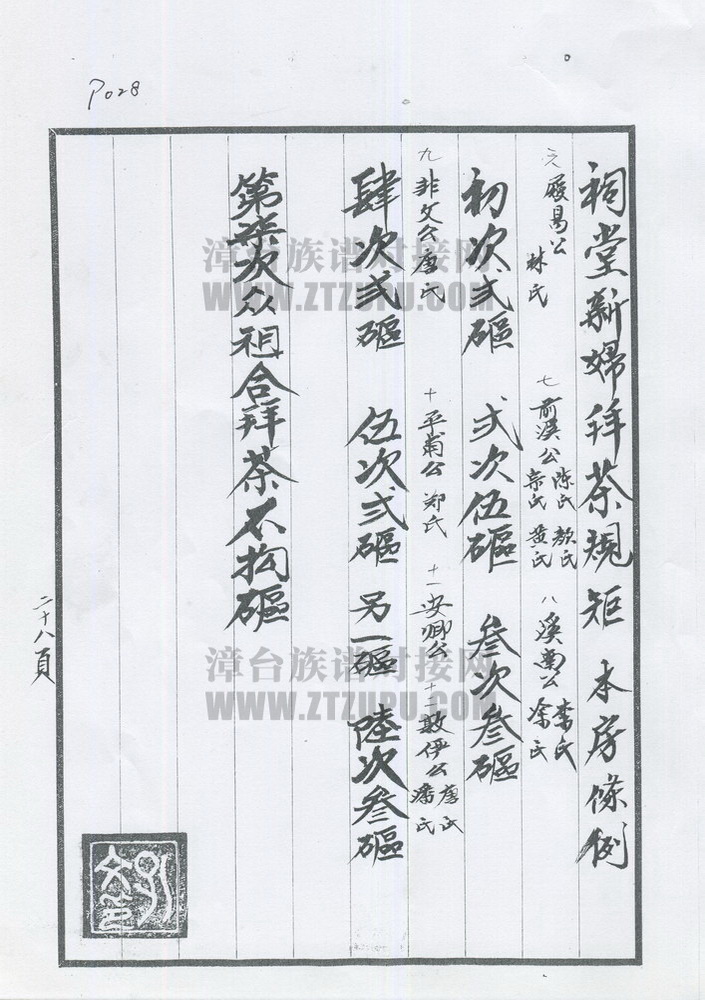 P028
祠堂新婦拜茶規矩 本房條例
六 殿昜公 林氏 七 前溪公 陈氏 顏氏 宗氏 黄氏 八 溪南公 李氏 涂氏
初次弍礓 弍次伍礓 叁次叁礓
九 非文公 唐氏 十 平甫公 郑氏 十一 安卿公 十二 敦伊公 唐氏 潘氏
肆次弍礓 伍次弍礓 另一礓 陸次叁礓
第柒次众祖合拜茶不拘礓
二十八頁
漳台族谱对接网
WWW.ZTZUPU.COM
漳台族谱对接网
WWW.ZTZUPU.COM